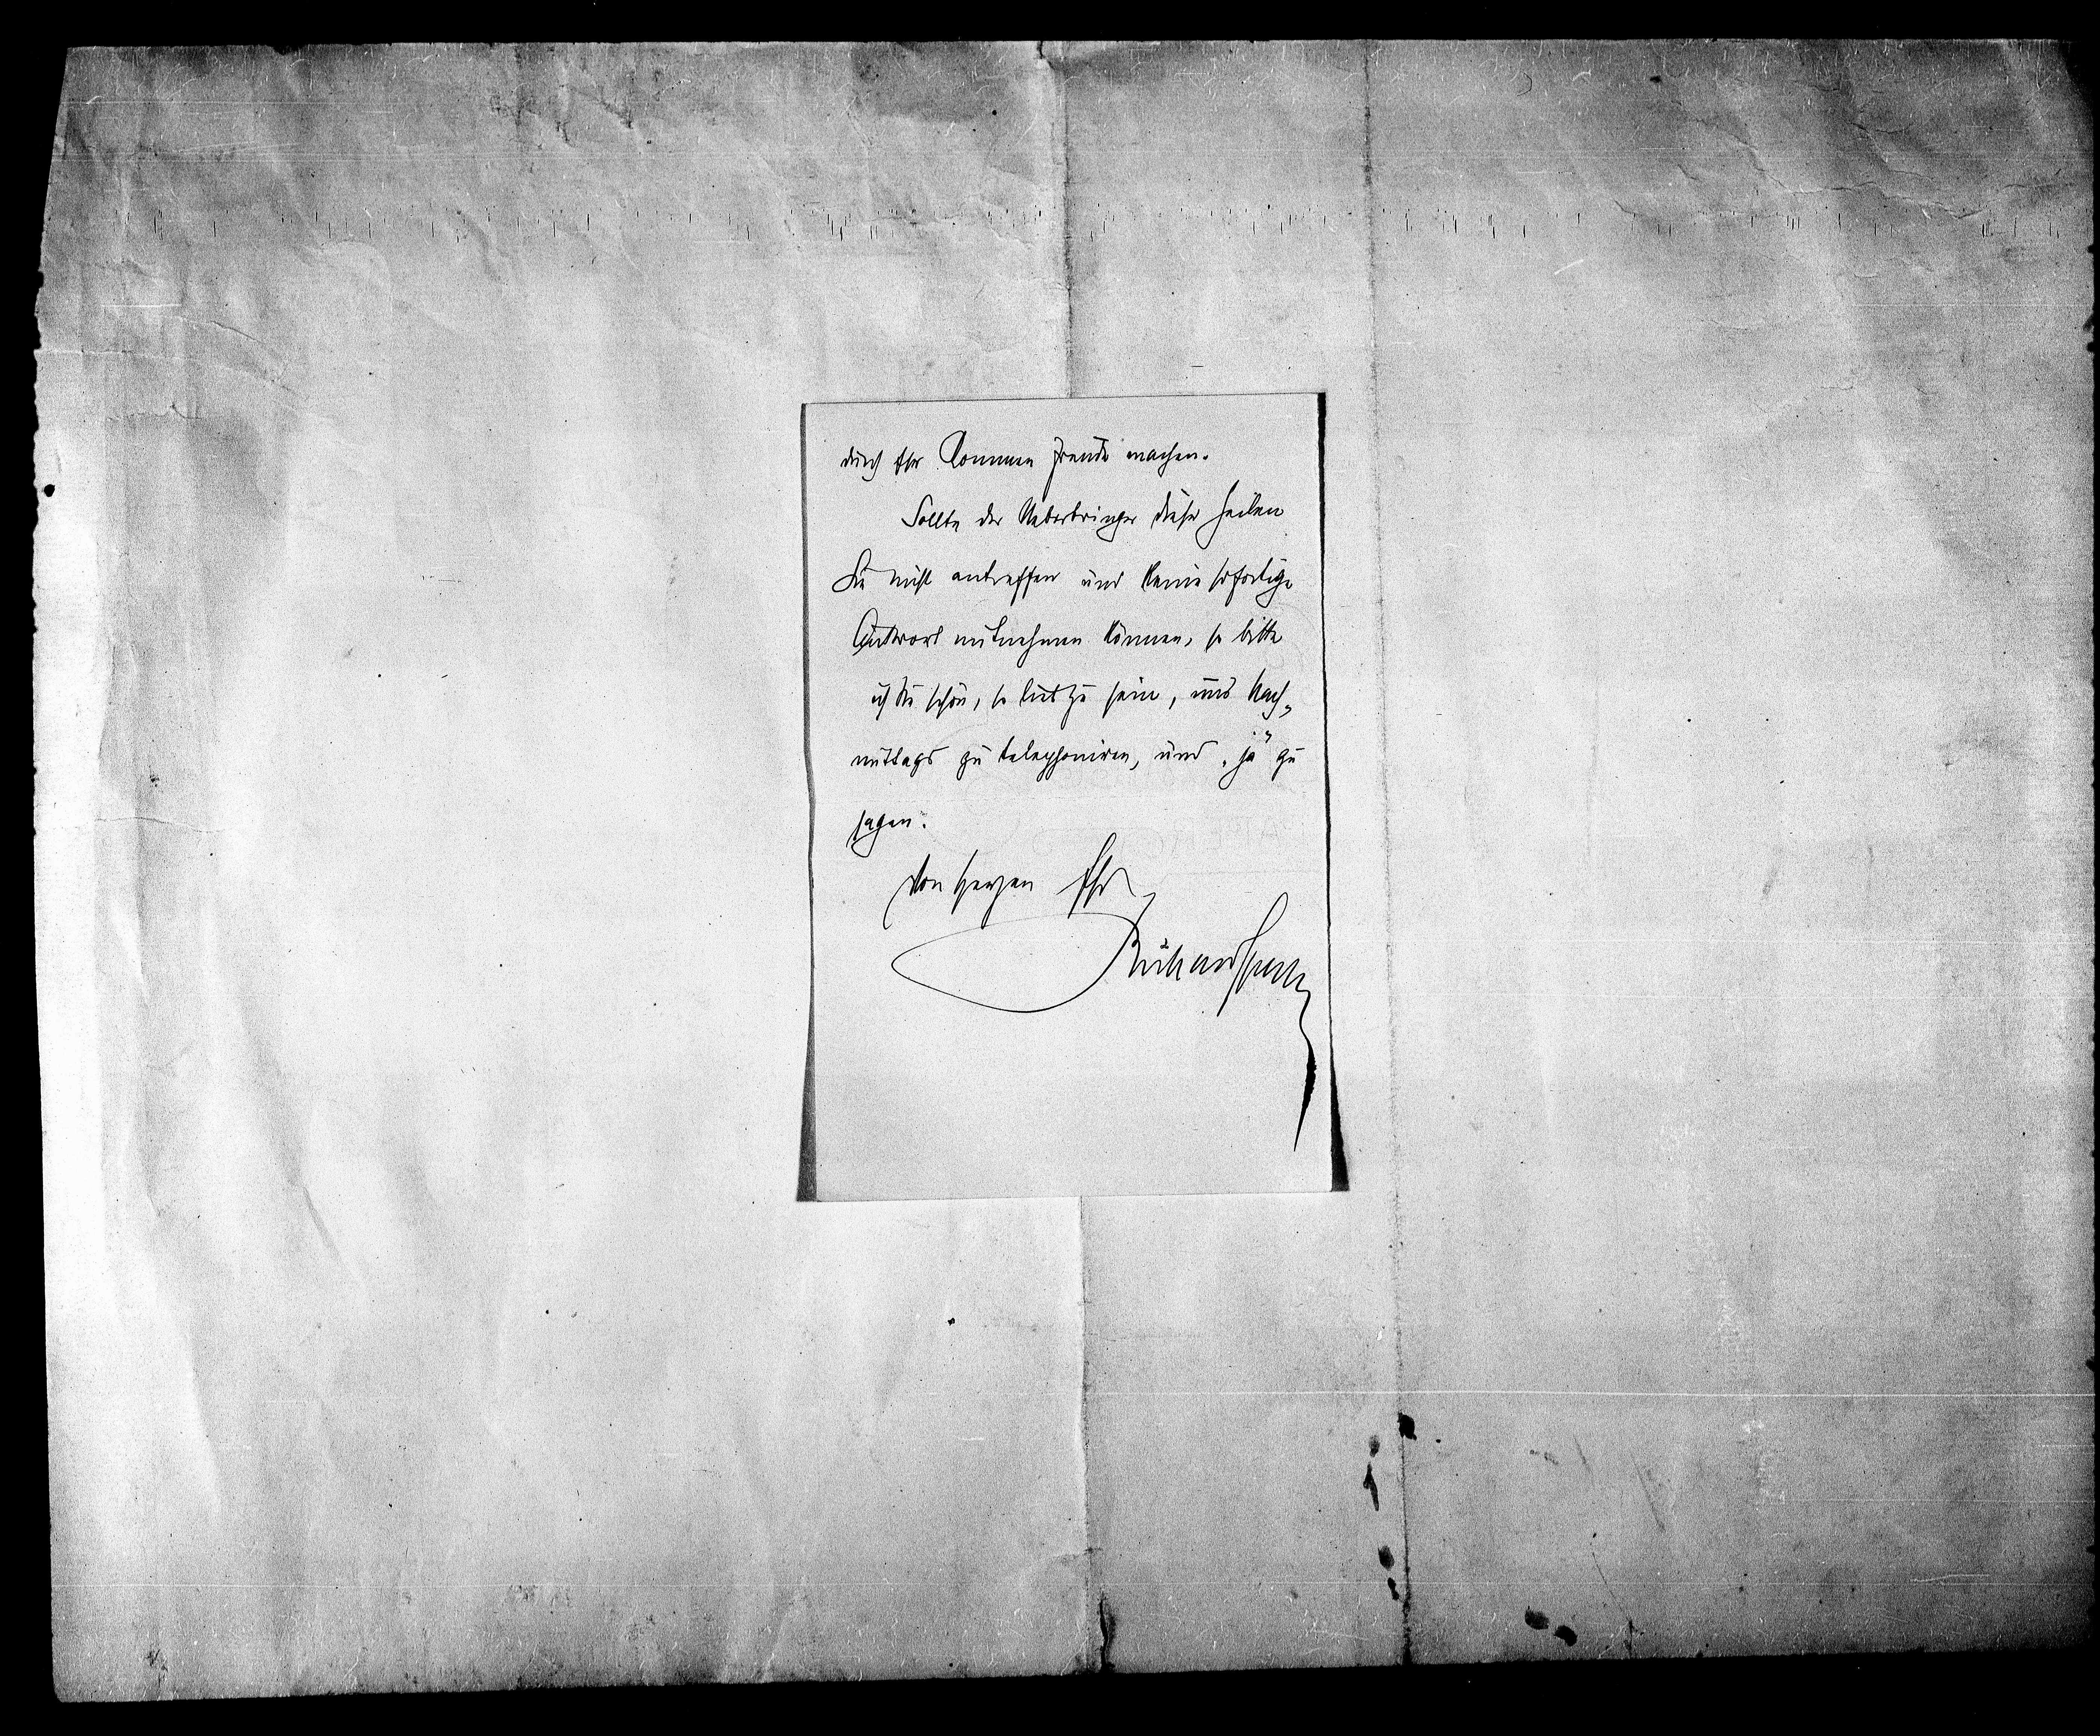 durch Ihr Kommen Freude machen.
Sollte der Ueberbringer dieser Zeilen
Sie nicht antreffen und keine sofortige
Antwort mitnehmen können, so bitte
ich Sie schön, so lieb zu sein, uns Nach-
mittags zu telephoniren, und „ja" zu
sagen.
Von Herzen Ihr
Richard